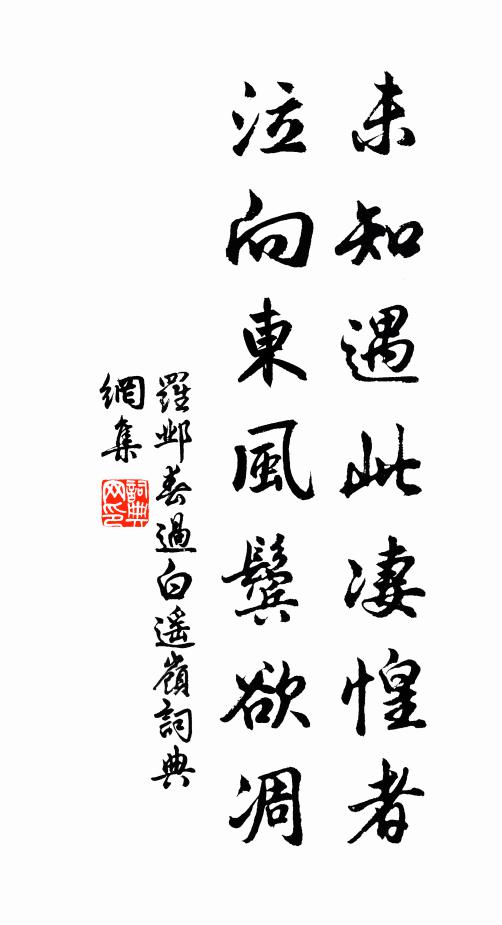 未知遇此凄惶者
泣向東風鬓欲凋
羅邺春過白遥嶺詞典
網集
詞典
网印